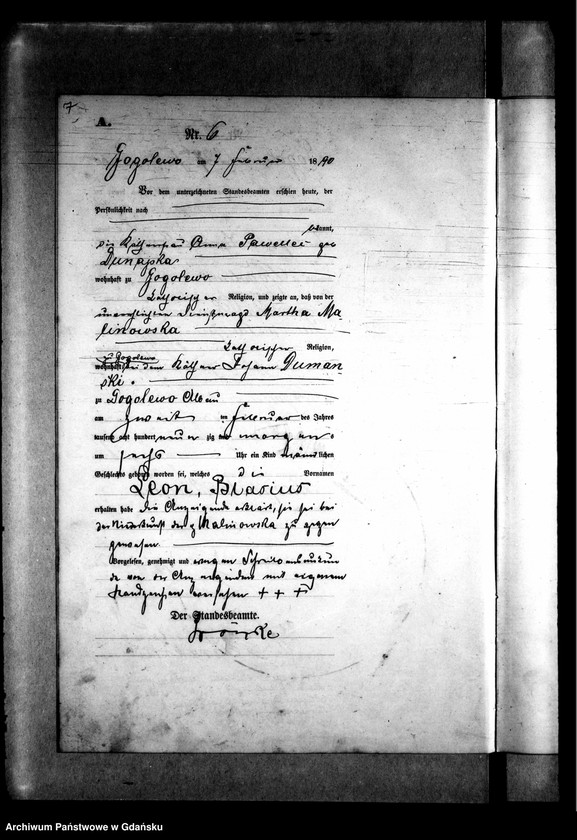 7
A.
Nr. 6
Gogolewo am 7 Februar 1890
Vor dem unterzeichneten Standesbeamten erschien heute, der
Persönlichkeit nach
bekannt,
die Käthnerfrau Anna Pawelkei geb
Dunajska
wohnhaft zu Gogolewo
katholischer Religion, und zeigte an, daß von der
unverehelichten Dienstmagd Martha Ma-
linowska
katholischer Religion,
zu Gogolewo
wohnhaft bei dem Käthner Johann Duman-
ski
zu Gogolewo Abbau
am zweiten Februar des Jahres
tausend acht hundert neunzig morgens
um sechs Uhr ein Kind männlichen
Geschlechts geboren worden sei, welches die Vornamen
Leon, Blasius
erhalten habe die Anzeigende erklärt, sie sei bei
der Niederkunft der Malinowska zugegen
gewesen.
Vorgelesen, genehmigt und wegen Schreibensunkun
de von der Anzeigenden mit eigenem
Handzeichen versehen + + +
Der Standesbeamte.
Archiwum Państwowe w Gdańsku